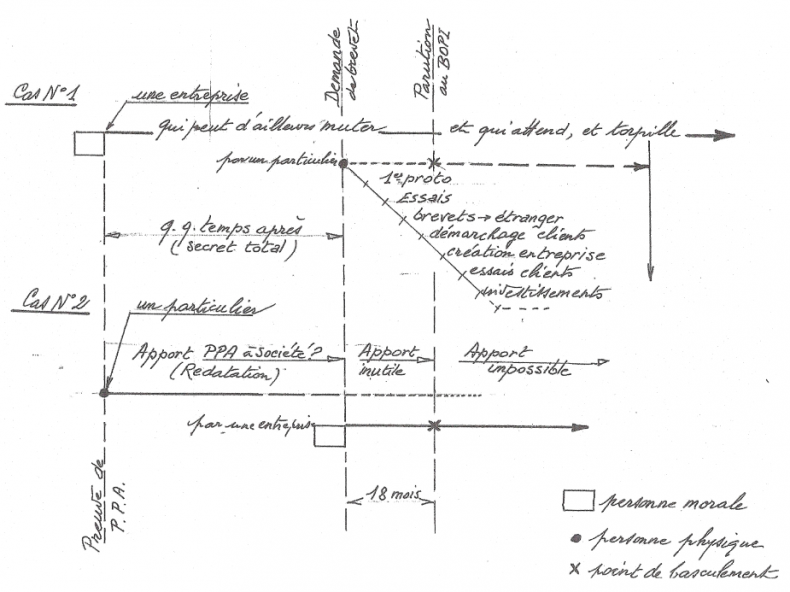 Demande
de brevet
Parution
au BOPI
Cas N°1
une entreprise
qui peut d'ailleurs muter
et qui attend, et torpille
par un particulier
1er proto
Essais
brevets → étranger
démarchage clients
création entreprise
essais clients
investissements
q.q. temps après
(secret total)
Cas N°2
un particulier
Apport PPA à société?
(Redatation)
Apport
inutile
Apport
impossible
par une entreprise
18 mois
Preuve de
P.P.A.
personne morale
personne physique
× point de basculement